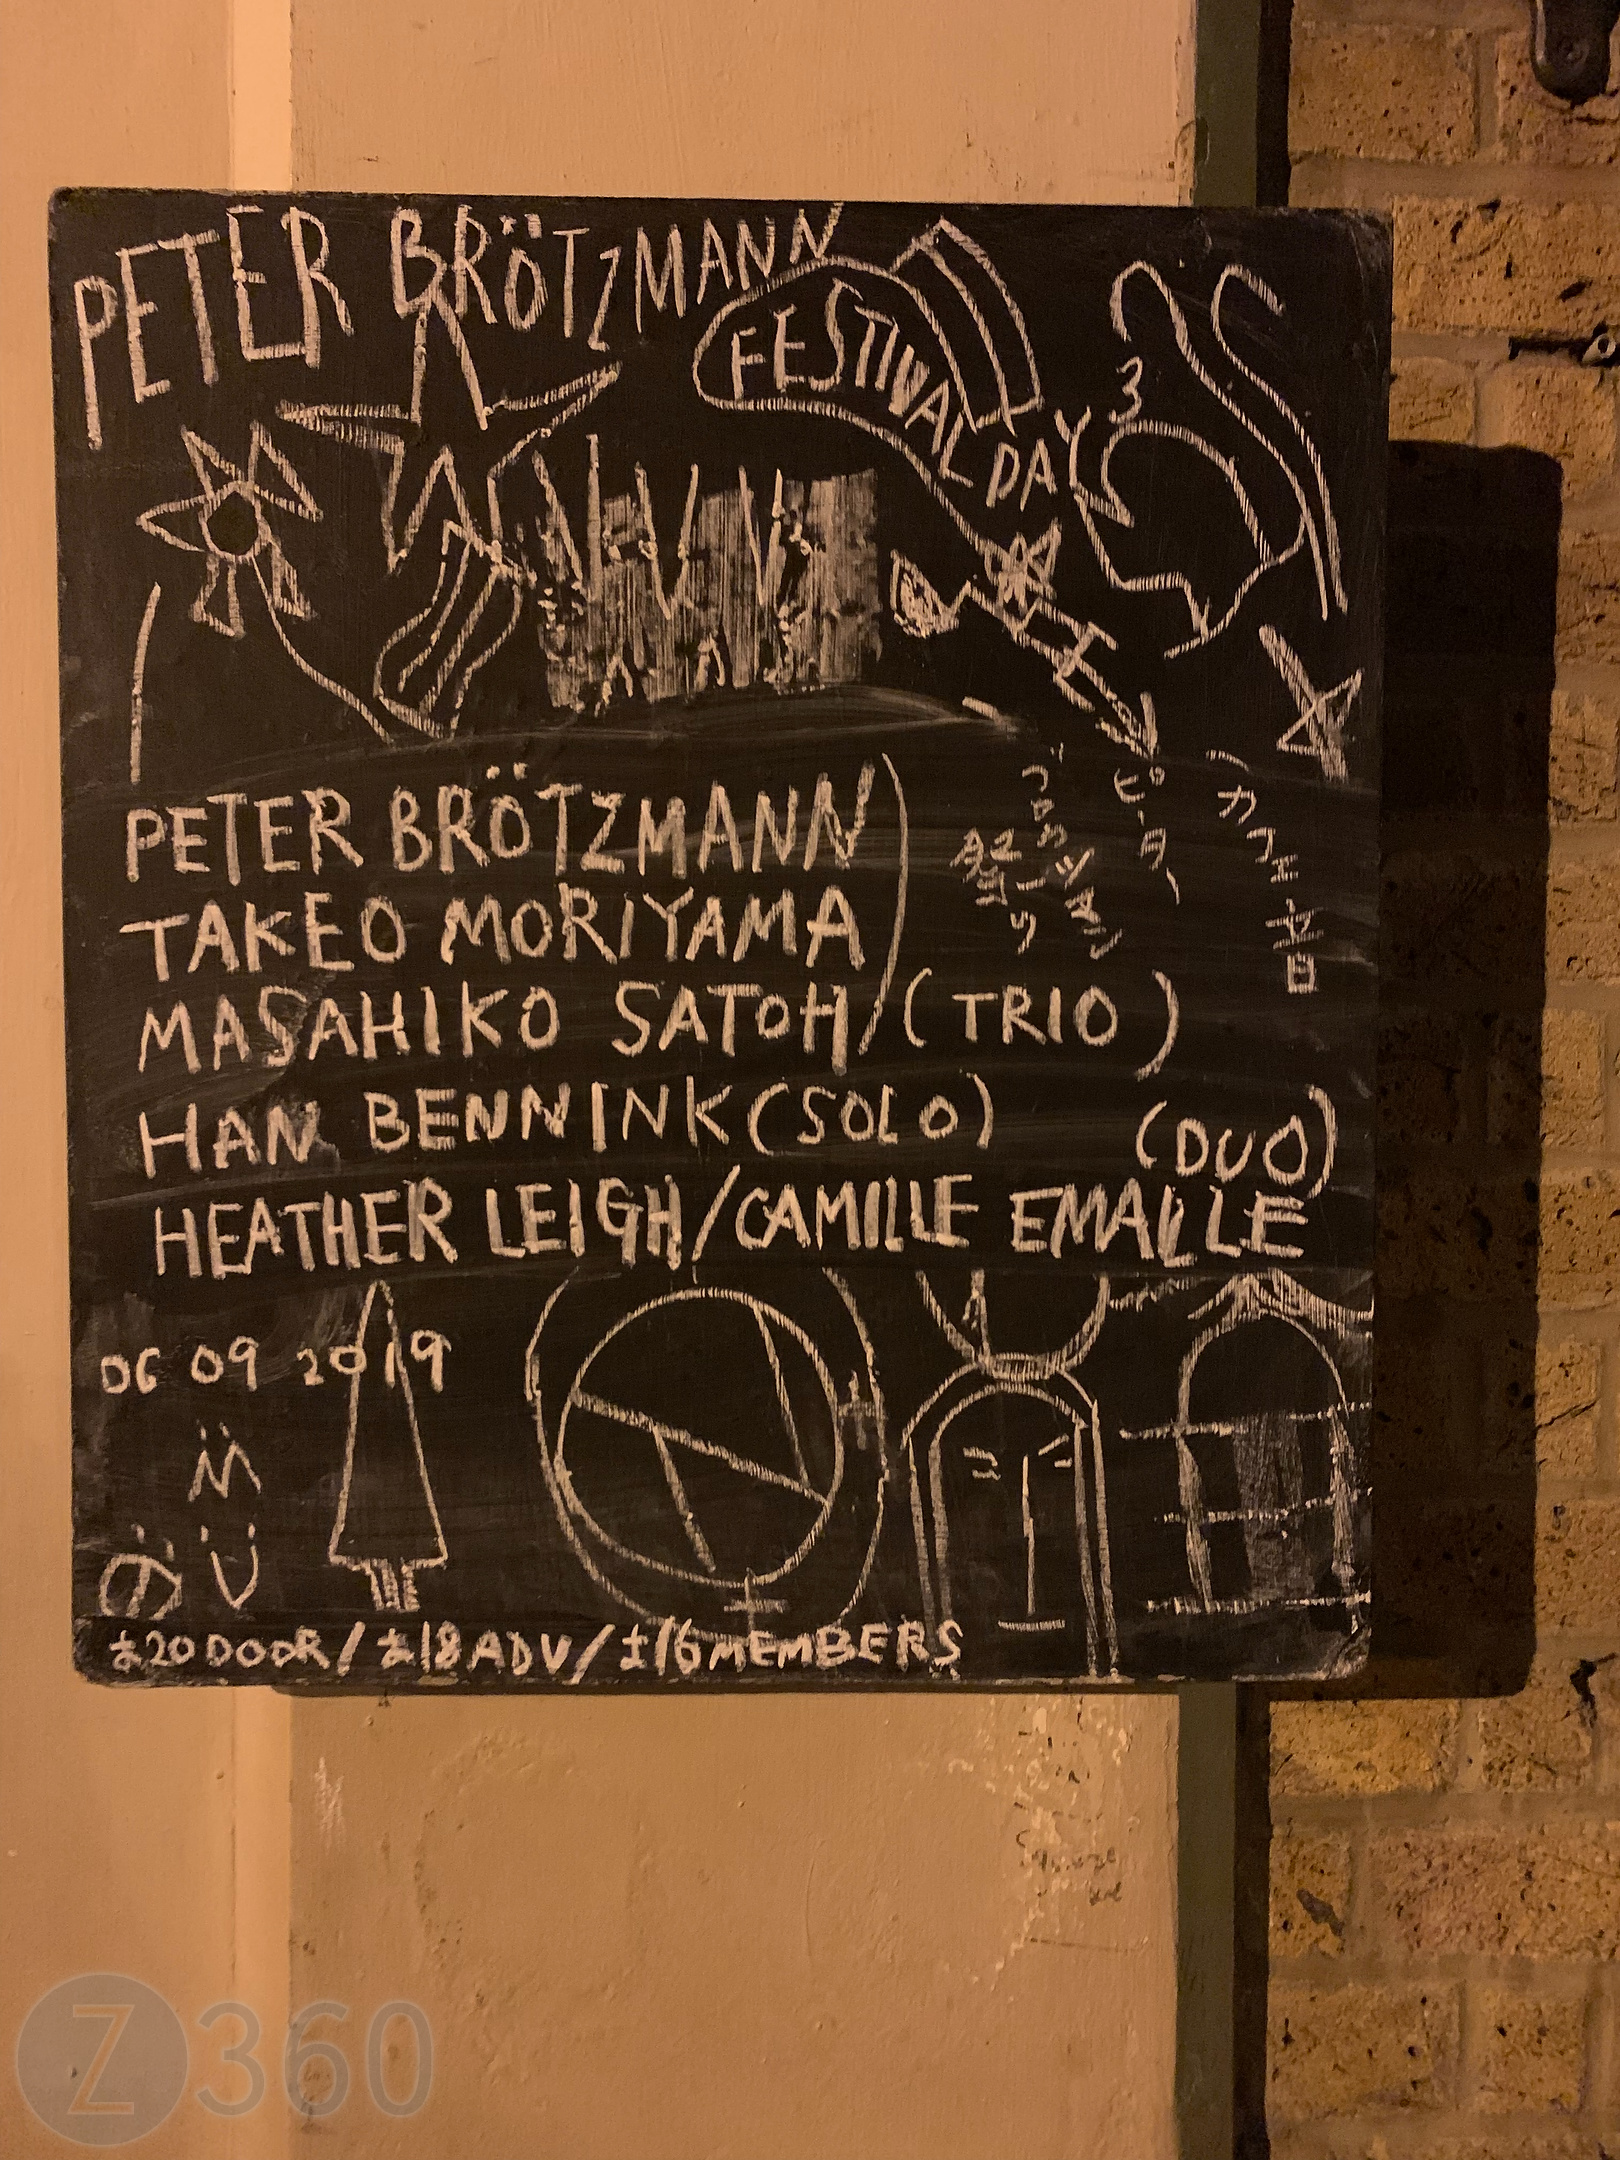 PETER BRÖTZMANN
FESTIVAL DAY 3
PETER BRÖTZMANN
TAKEO MORIYAMA
MASAHIKO SATOH / (TRIO)
HAN BENNINK (SOLO)
(DUO)
HEATHER LEIGH / CAMILLE EMAILLE
カフェ音
ピーター
ブロッツマン
09 2019
£20 DOOR / £18 ADV / £16 MEMBERS
Z360